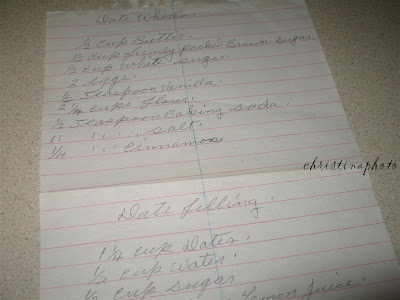 Date Whirls.
1/2 cup Butter.
1/2 cup firmly packed Brown sugar.
1/2 cup white sugar.
2 eggs.
1/2 Teaspoon Vanilla.
2 1/4 cups flour.
1/2 Teaspoon Baking soda.
" " " salt.
1/4 " " Cinnamon.
christinaphoto
Date filling.
1 1/4 cup Dates.
1/2 cup water.
1/2 cup sugar
Lemon juice.